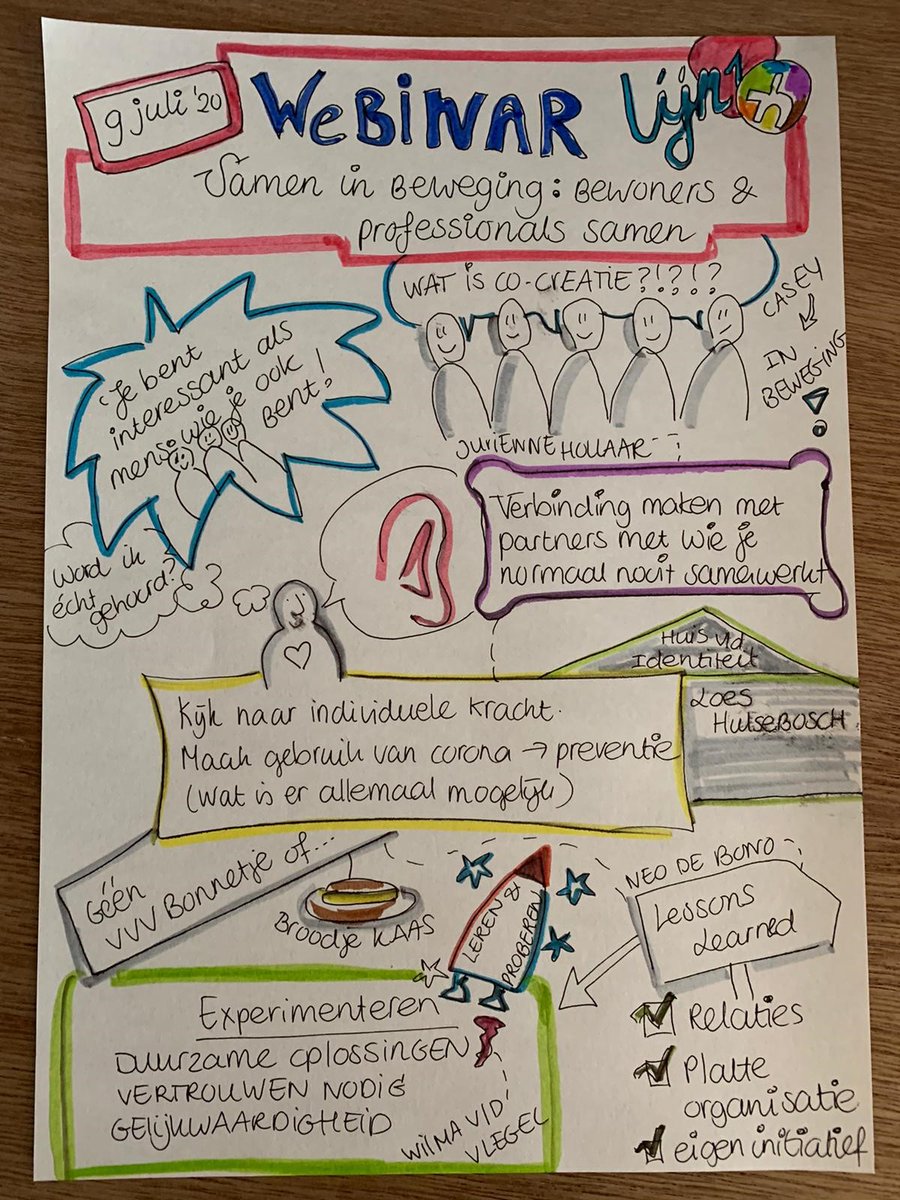 9 juli '20
WEBINAR Lijn1
Samen in Beweging: Bewoners &
professionals samen
WAT IS CO-CREATIE?!?!?
CASEY
IN
BEWEGING
!
'Je bent
interessant als
mens wie je ook
bent!
JURIENNE HOLLAAR
Verbinding maken met
partners met wie je
normaal nooit samenwerkt
Word ik
écht
gehoord?
Huis vd
Identiteit
LOES
HULSEBOSCH
Kijk naar individuele kracht.
Maak gebruik van corona → preventie
(wat is er allemaal mogelijk)
Géén
VVV Bonnetje of...
Broodje KAAS
LEREN &
PROBEREN
NEO DE BONO
Lessons
Learned
Relaties
Platte
organisatie
eigen initiatief
Experimenteren
DUURZAME OPLOSSINGEN
VERTROUWEN NODIG
GELIJKWAARDIGHEID
WILMA VID'
VLEGEL